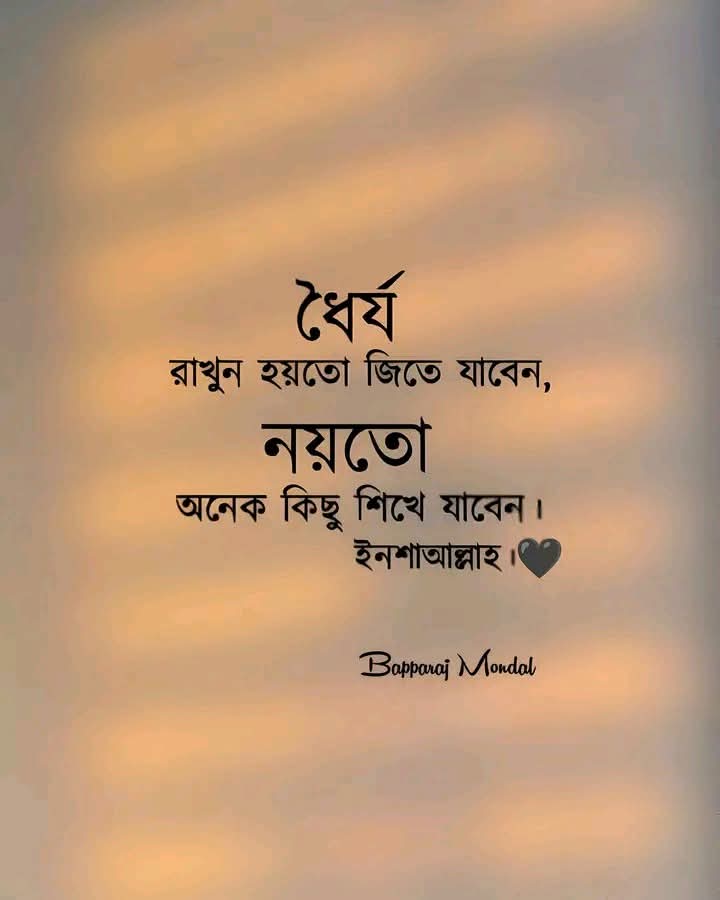 ধৈর্য
রাখুন হয়তো জিতে যাবেন,
নয়তো
অনেক কিছু শিখে যাবেন।
ইনশাআল্লাহ।🖤
Bapparaj Mondal